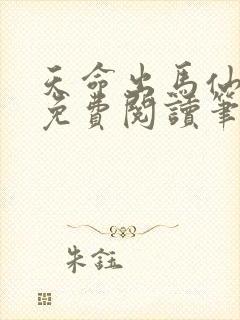 天命出馬仙
免費閱讀筆
朱鈺